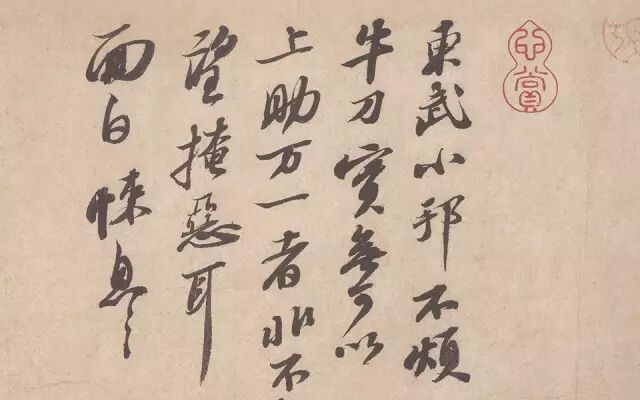 東武小邦不煩
牛刀實無可以
上助万一者非不
望掩惡耳
面白悚息〻